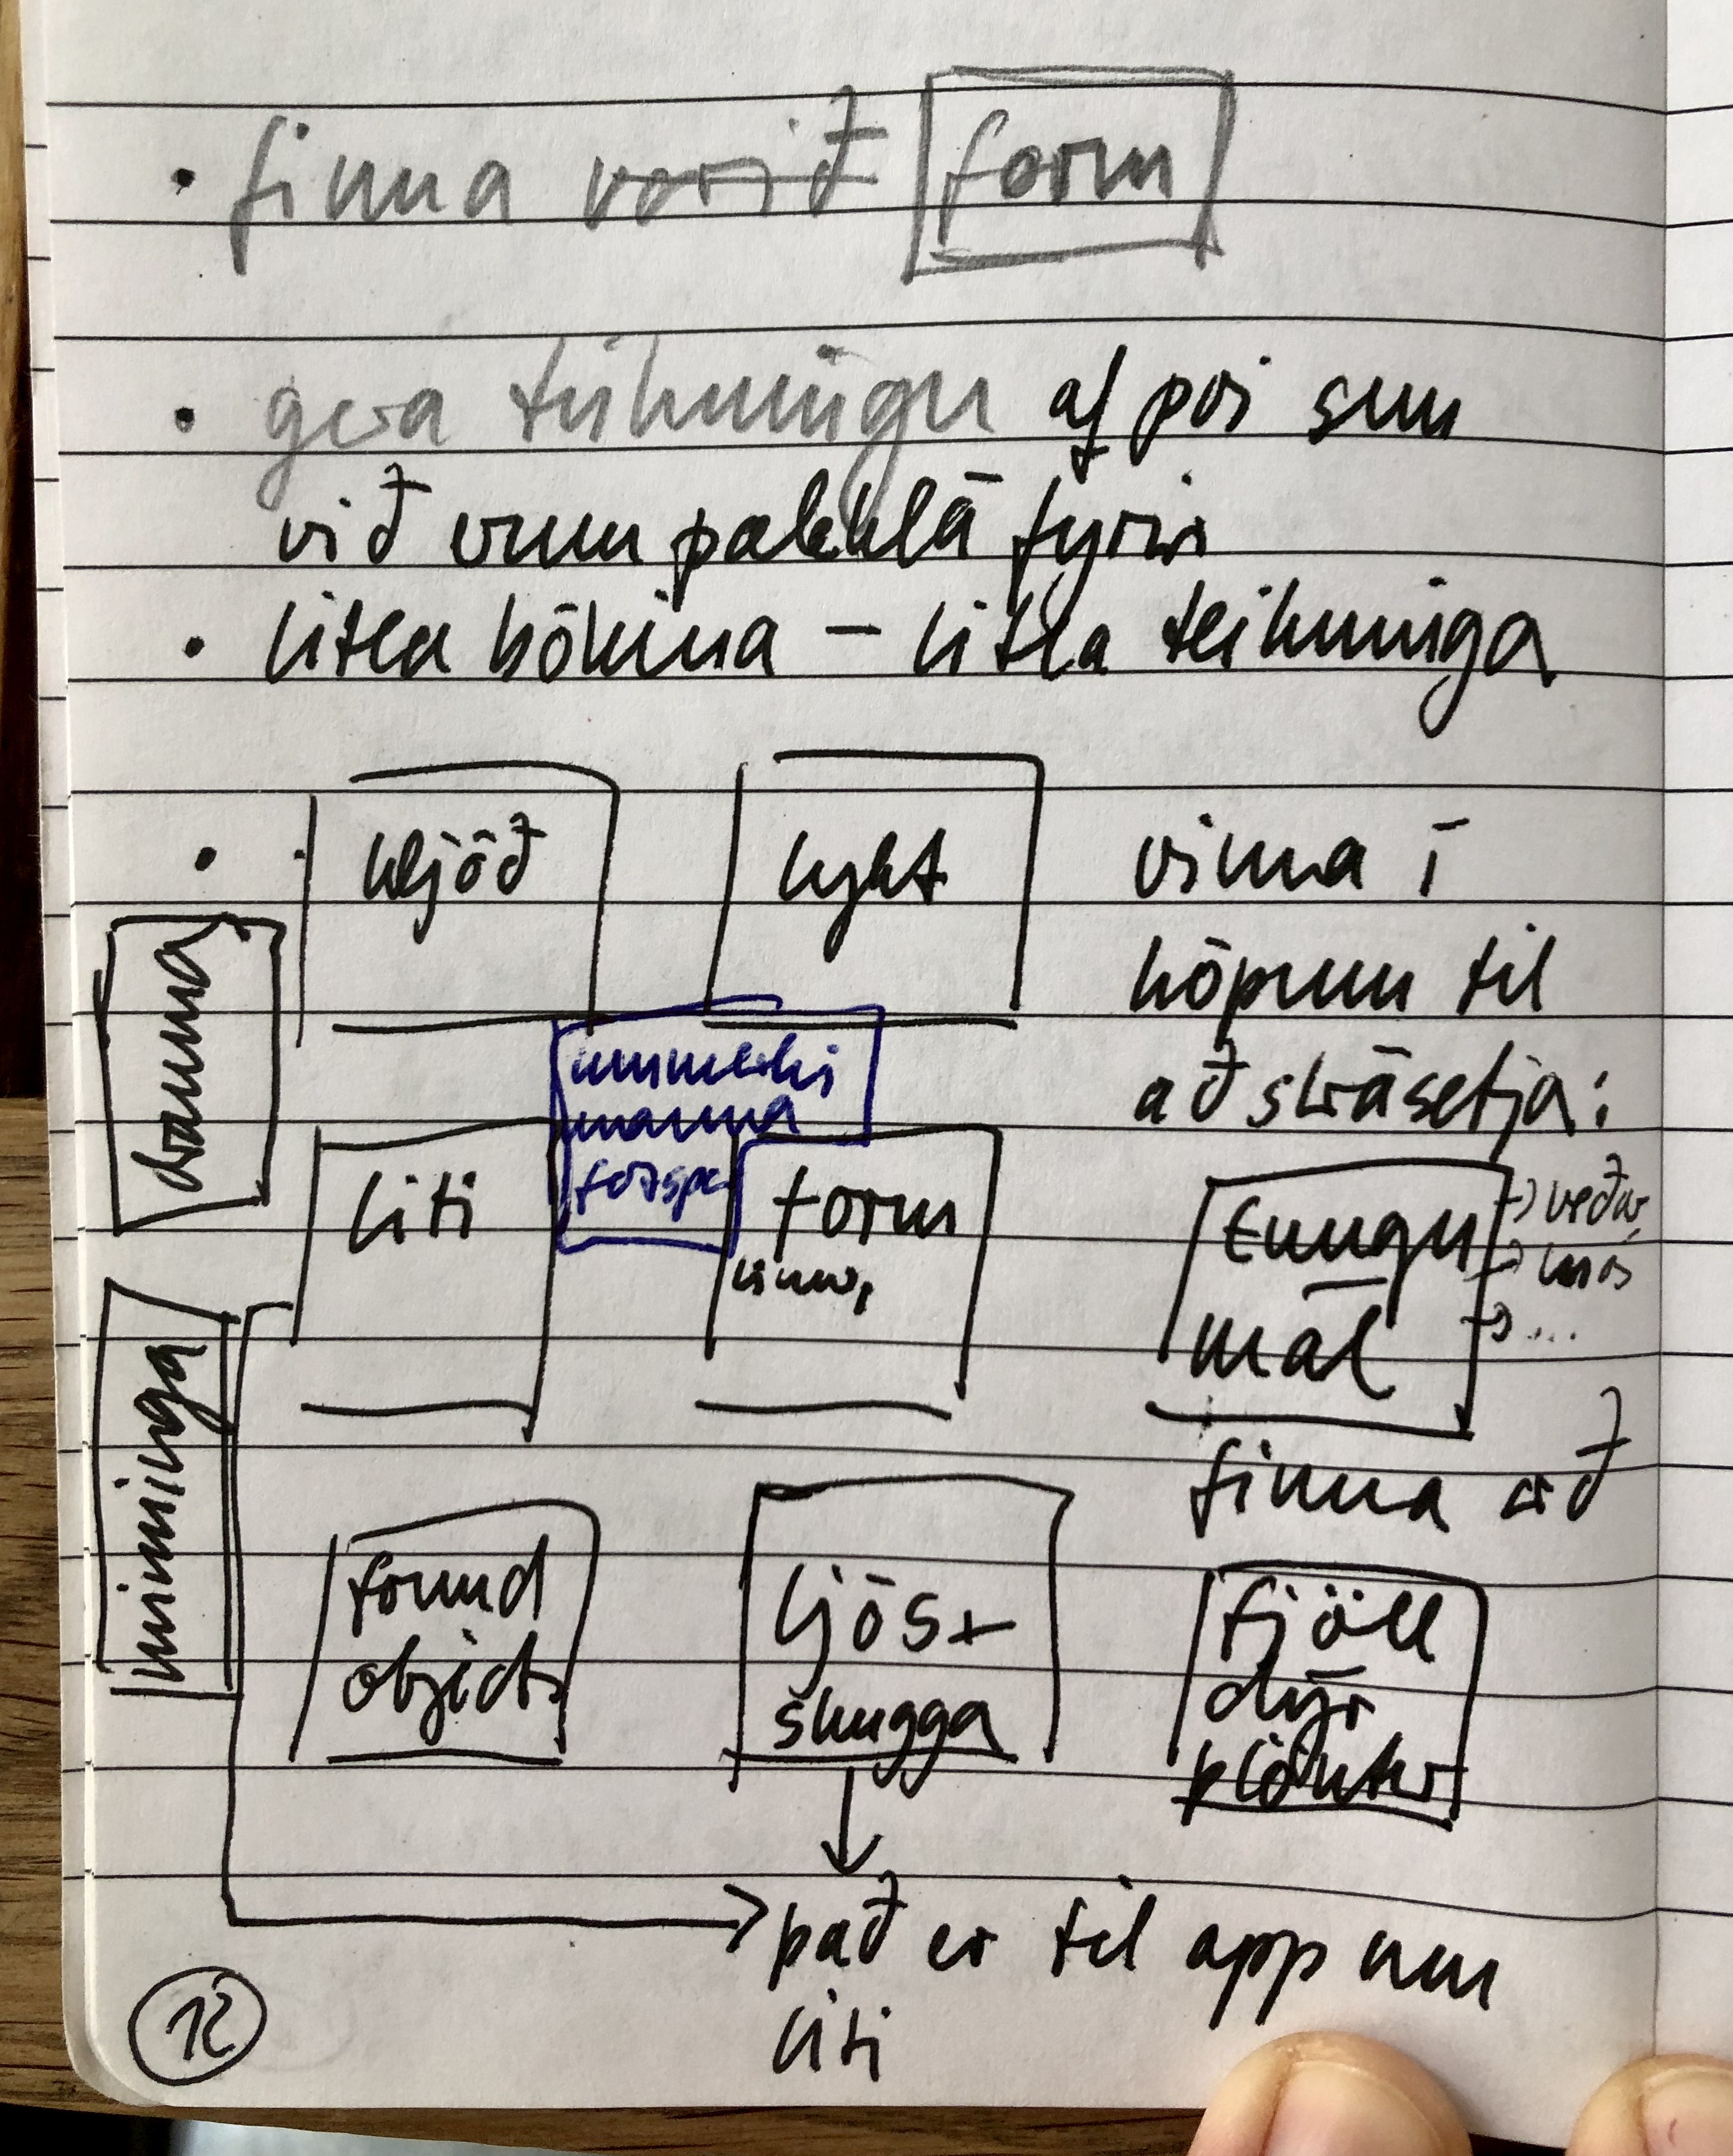 • finna verið form
• gera teikningu af því sem
við erum þakklát fyrir
• litla bókina – litla teikninga
• hljóð
lykt
vinna í
hópum til
að skrásetja:
drauma
ummerki
manna
liti
form
línur,
tungu
mál
→ veður
→ snjós
→ ...
minninga
finna að
found
objects
ljós +
skugga
fjöll
dýr
plöntur
það er til app um
liti
12